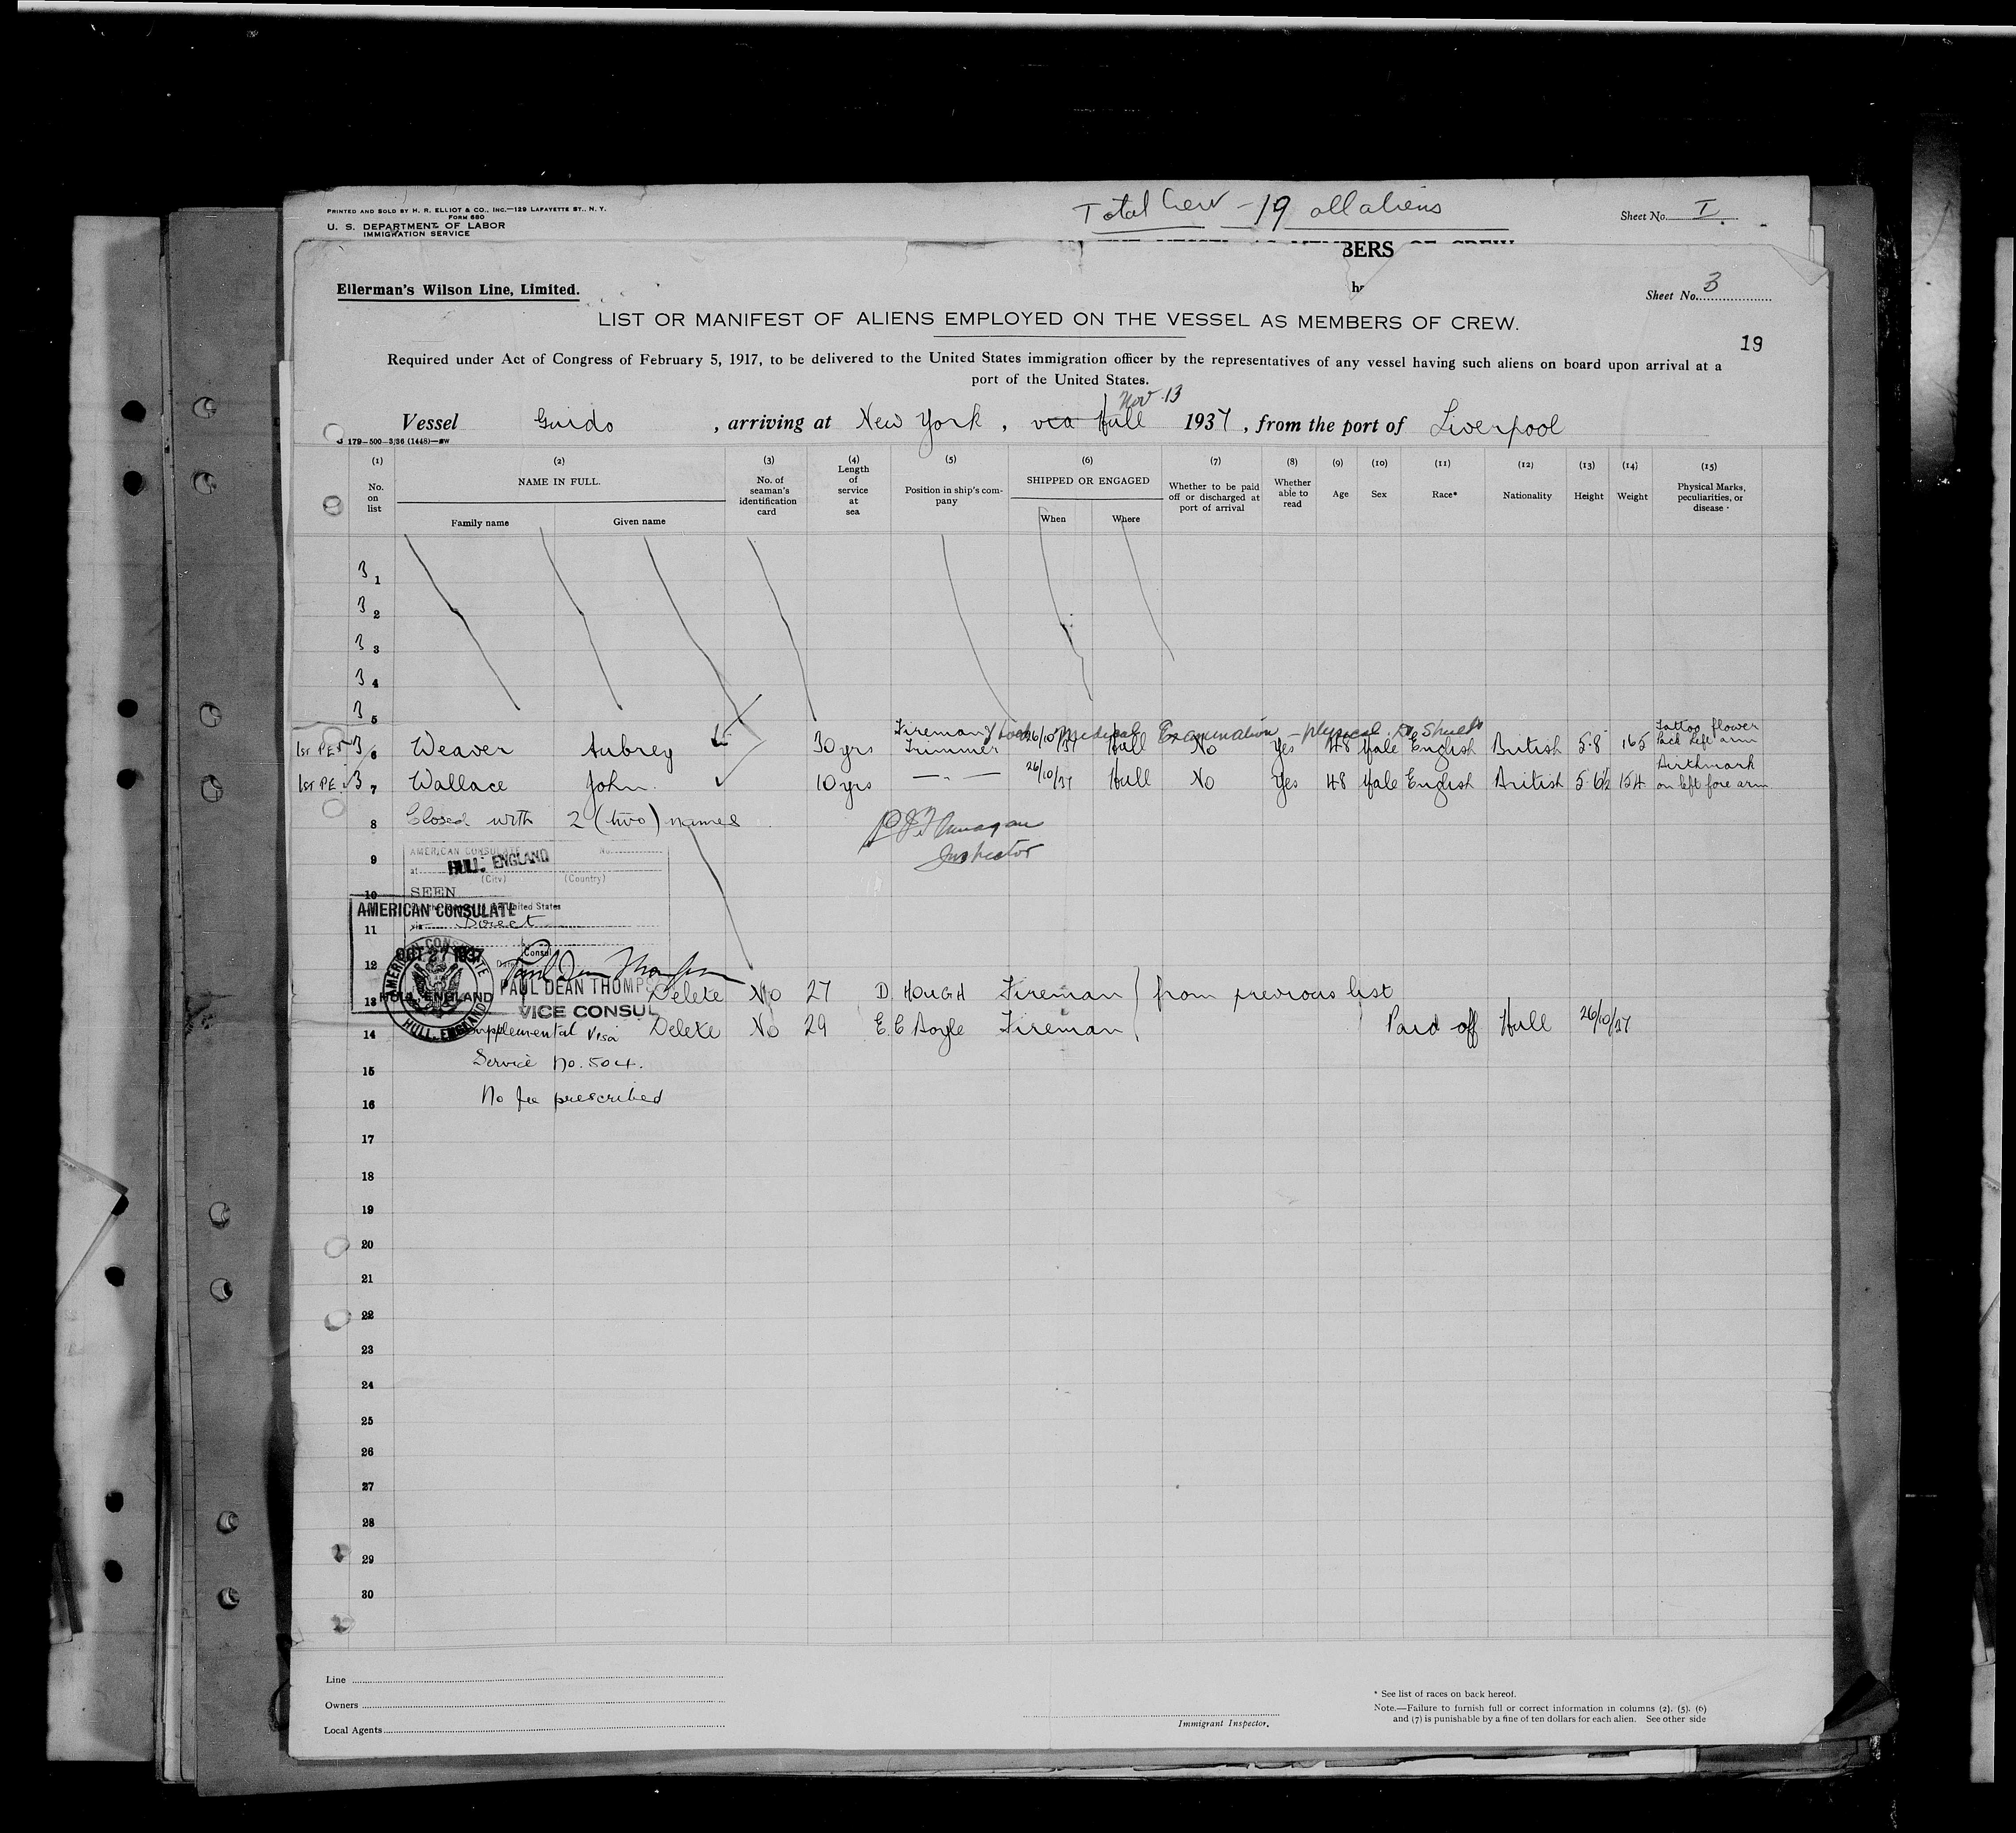 PRINTED AND SOLD BY H. R. ELLIOT & CO., INC.—129 LAFAYETTE ST., N. Y.
FORM 680
U. S. DEPARTMENT OF LABOR
IMMIGRATION SERVICE
Total Crew - 19 all aliens
Sheet No. I.
BERS
Ellerman's Wilson Line, Limited.
Sheet No. 3
LIST OR MANIFEST OF ALIENS EMPLOYED ON THE VESSEL AS MEMBERS OF CREW.
19
Required under Act of Congress of February 5, 1917, to be delivered to the United States immigration officer by the representatives of any vessel having such aliens on board upon arrival at a
port of the United States.
Nov. 13
Vessel Guido, arriving at New York, via Hull 1937, from the port of Liverpool
179—500—3/36 (1448)—
(1) (2) (3) (4) (5) (6) (7) (8) (9) (10) (11) (12) (13) (14) (15)
No. on list
NAME IN FULL.
Family name Given name
No. of seaman's identification card
Length of service at sea
Position in ship's company
SHIPPED OR ENGAGED
When Where
Whether to be paid off or discharged at port of arrival
Whether able to read
Age Sex Race* Nationality Height Weight
Physical Marks, peculiarities, or disease
3 1
3 2
3 3
3 4
3 5
Medical Examination - physical, Dr.
1st PE 3 6 Weaver Aubrey 30 yrs Fireman & Trimmer 26/10/37 Hull No Yes 48 Male English British 5·8 165 Tattoo flower back left arm
1st PE. 3 7 Wallace John. 10 yrs — " — 26/10/37 Hull No Yes 48 Male English British 5·6½ 154 Birthmark on left fore arm
8 Closed with 2 (two) names
Inspector
9
AMERICAN CONSULATE No.
at HULL, ENGLAND
(City) (Country)
10 SEEN
United States
AMERICAN CONSULATE
11 via Direct
Consul
12 OCT 27 1937
Date
Paul Dean Thompson
AMERICAN CONSULATE HULL, ENGLAND
HULL, ENGLAND
PAUL DEAN THOMPS
VICE CONSUL
13 Delete No 27 D. HOUGH Fireman } from previous list
14 Supplemental Visa Delete No 29 E. E Doyle Fireman Paid off Hull 26/10/37
15 Service No. 504.
16 No fee prescribed
17
18
19
20
21
22
23
24
25
26
27
28
29
30
Line
Owners
Local Agents
Immigrant Inspector.
* See list of races on back hereof.
Note.—Failure to furnish full or correct information in columns (2), (5), (6)
and (7) is punishable by a fine of ten dollars for each alien. See other side